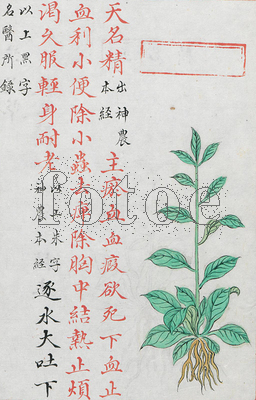 天名精出神農本經主瘀血血瘕欲死下血止
血利小便除小蟲去痹除胸中結熱止煩
渴久服輕身耐老以上朱字神農本經逐水大吐下
以上黑字名醫所錄
fotoe